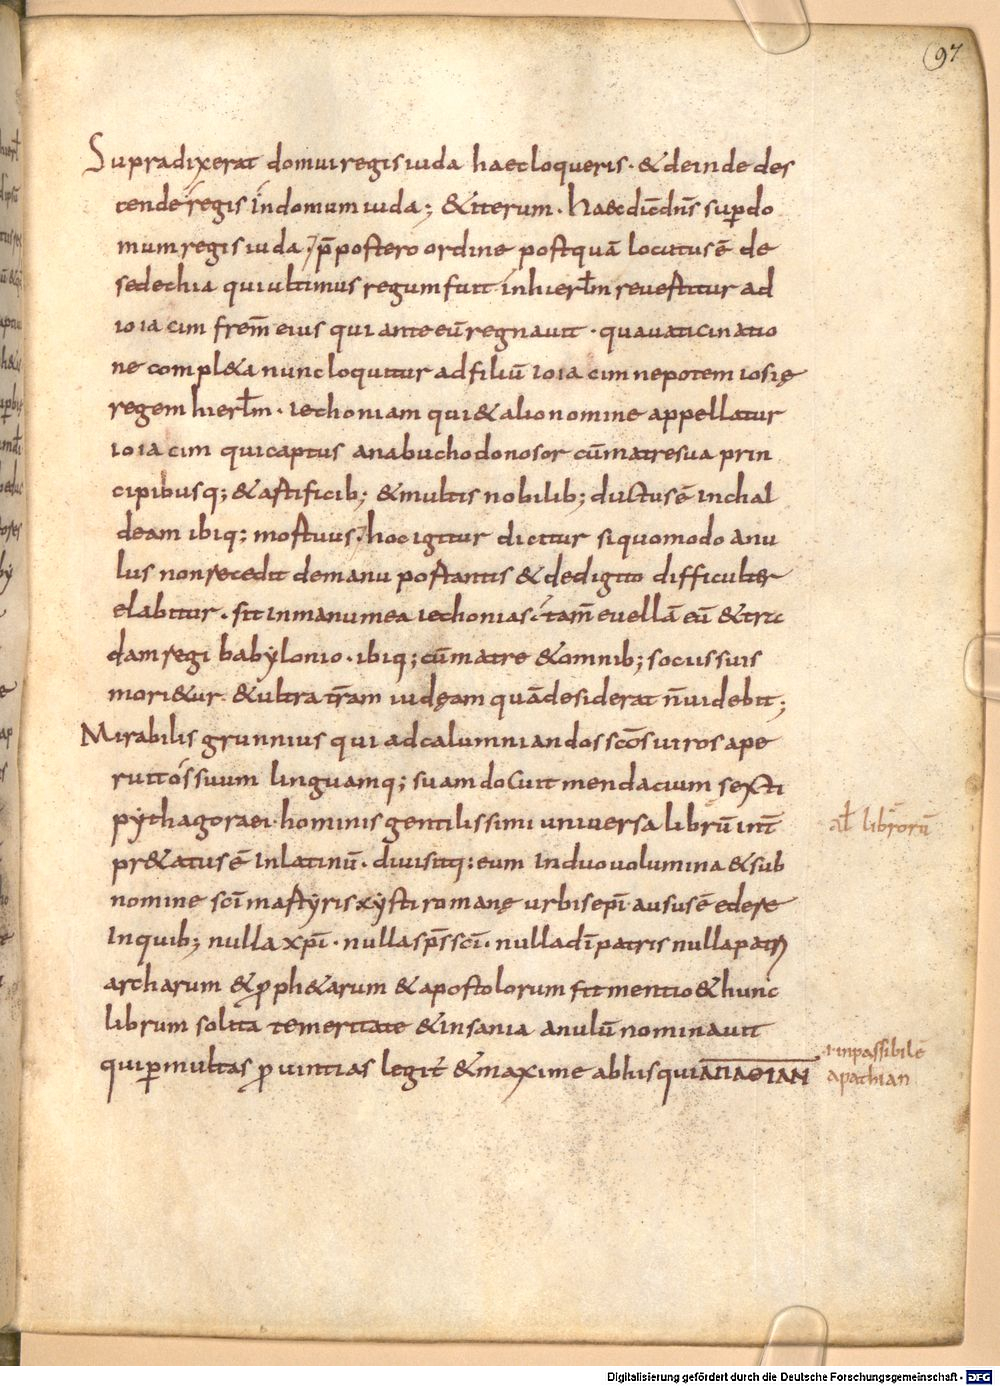 (97
Supradixerat domui regis iuda haec loqueris · & deinde des
cende regis in domum iuda ; & iterum · haec dic̄ dn̄s sup̄ do
mum regis iuda / p̄postero ordine postquā locutus ē de
sedechia qui ultimus regum fuit in hierl̄m revertitur ad
ioiacim frem̄ eius qui ante eū regnavit · qua vaticinatio
ne compl&a nunc loquitur ad filiū ioiacim nepotem iosię
regem hierl̄m · iechoniam qui & alio nomine appellatur
ioiacim qui captus a nabuchodonosor cū matre sua prin
cipibusq; & artificib; & multis nobilib; ductus ē in chal
deam ibiq; mortuus / hoc igitur dicitur si quomodo anu
lus non recedit de manu portantis & de digito difficulter
elabitur · sit in manu mea iechonias · tam̄ evellā eū & tra
dam regi babylonio · ibiq; cū matre & omnib; sociis suis
mori&ur · & ultra tr̄am iudęam quā desiderat n̄ videbit ;
Mirabilis grunnius qui ad calumniandos sc̄os viros ape
ruit os suum linguamq; suam docuit mendacium sexti
pythagoraei · hominis gentilissimi universa librū int̄
pr&atus ē in latinū · divisitq; eum in duo volumina & sub
nomine sc̄i martyris xysti romanę urbis ep̄i ausus ē edere
In quib; nulla xp̄i · nulla sp̄s sc̄i · nulla dī patris nulla patri
archarum & proph&arum & apostolorum fit mentio & hunc
librum solita temeritate & insania anulū nominavit
qui p̄ multas provintias legit̄ & maxime ab his qui ΑΠΑΘΙΑΝ
al̄ librorū
inpassibilē
apathian
Digitalisierung gefördert durch die Deutsche Forschungsgemeinschaft - DFG